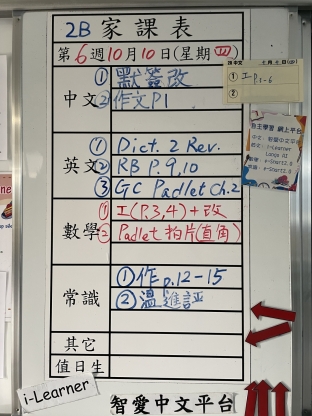 2B 家課表
第6週10月10日(星期四)
中文
① 默簽改
② 作文P1
① 工P.1-6
②
自主學習 網上平台
英文
① Dict. 2 Rev.
② RB P.9,10
③ GC Padlet Ch.2
數學
① 工(P.3,4)+改
② Padlet 拍片(直角)
常識
① 作 p.12-15
② 溫進評
其它
值日生
i-Learner
智愛中文平台